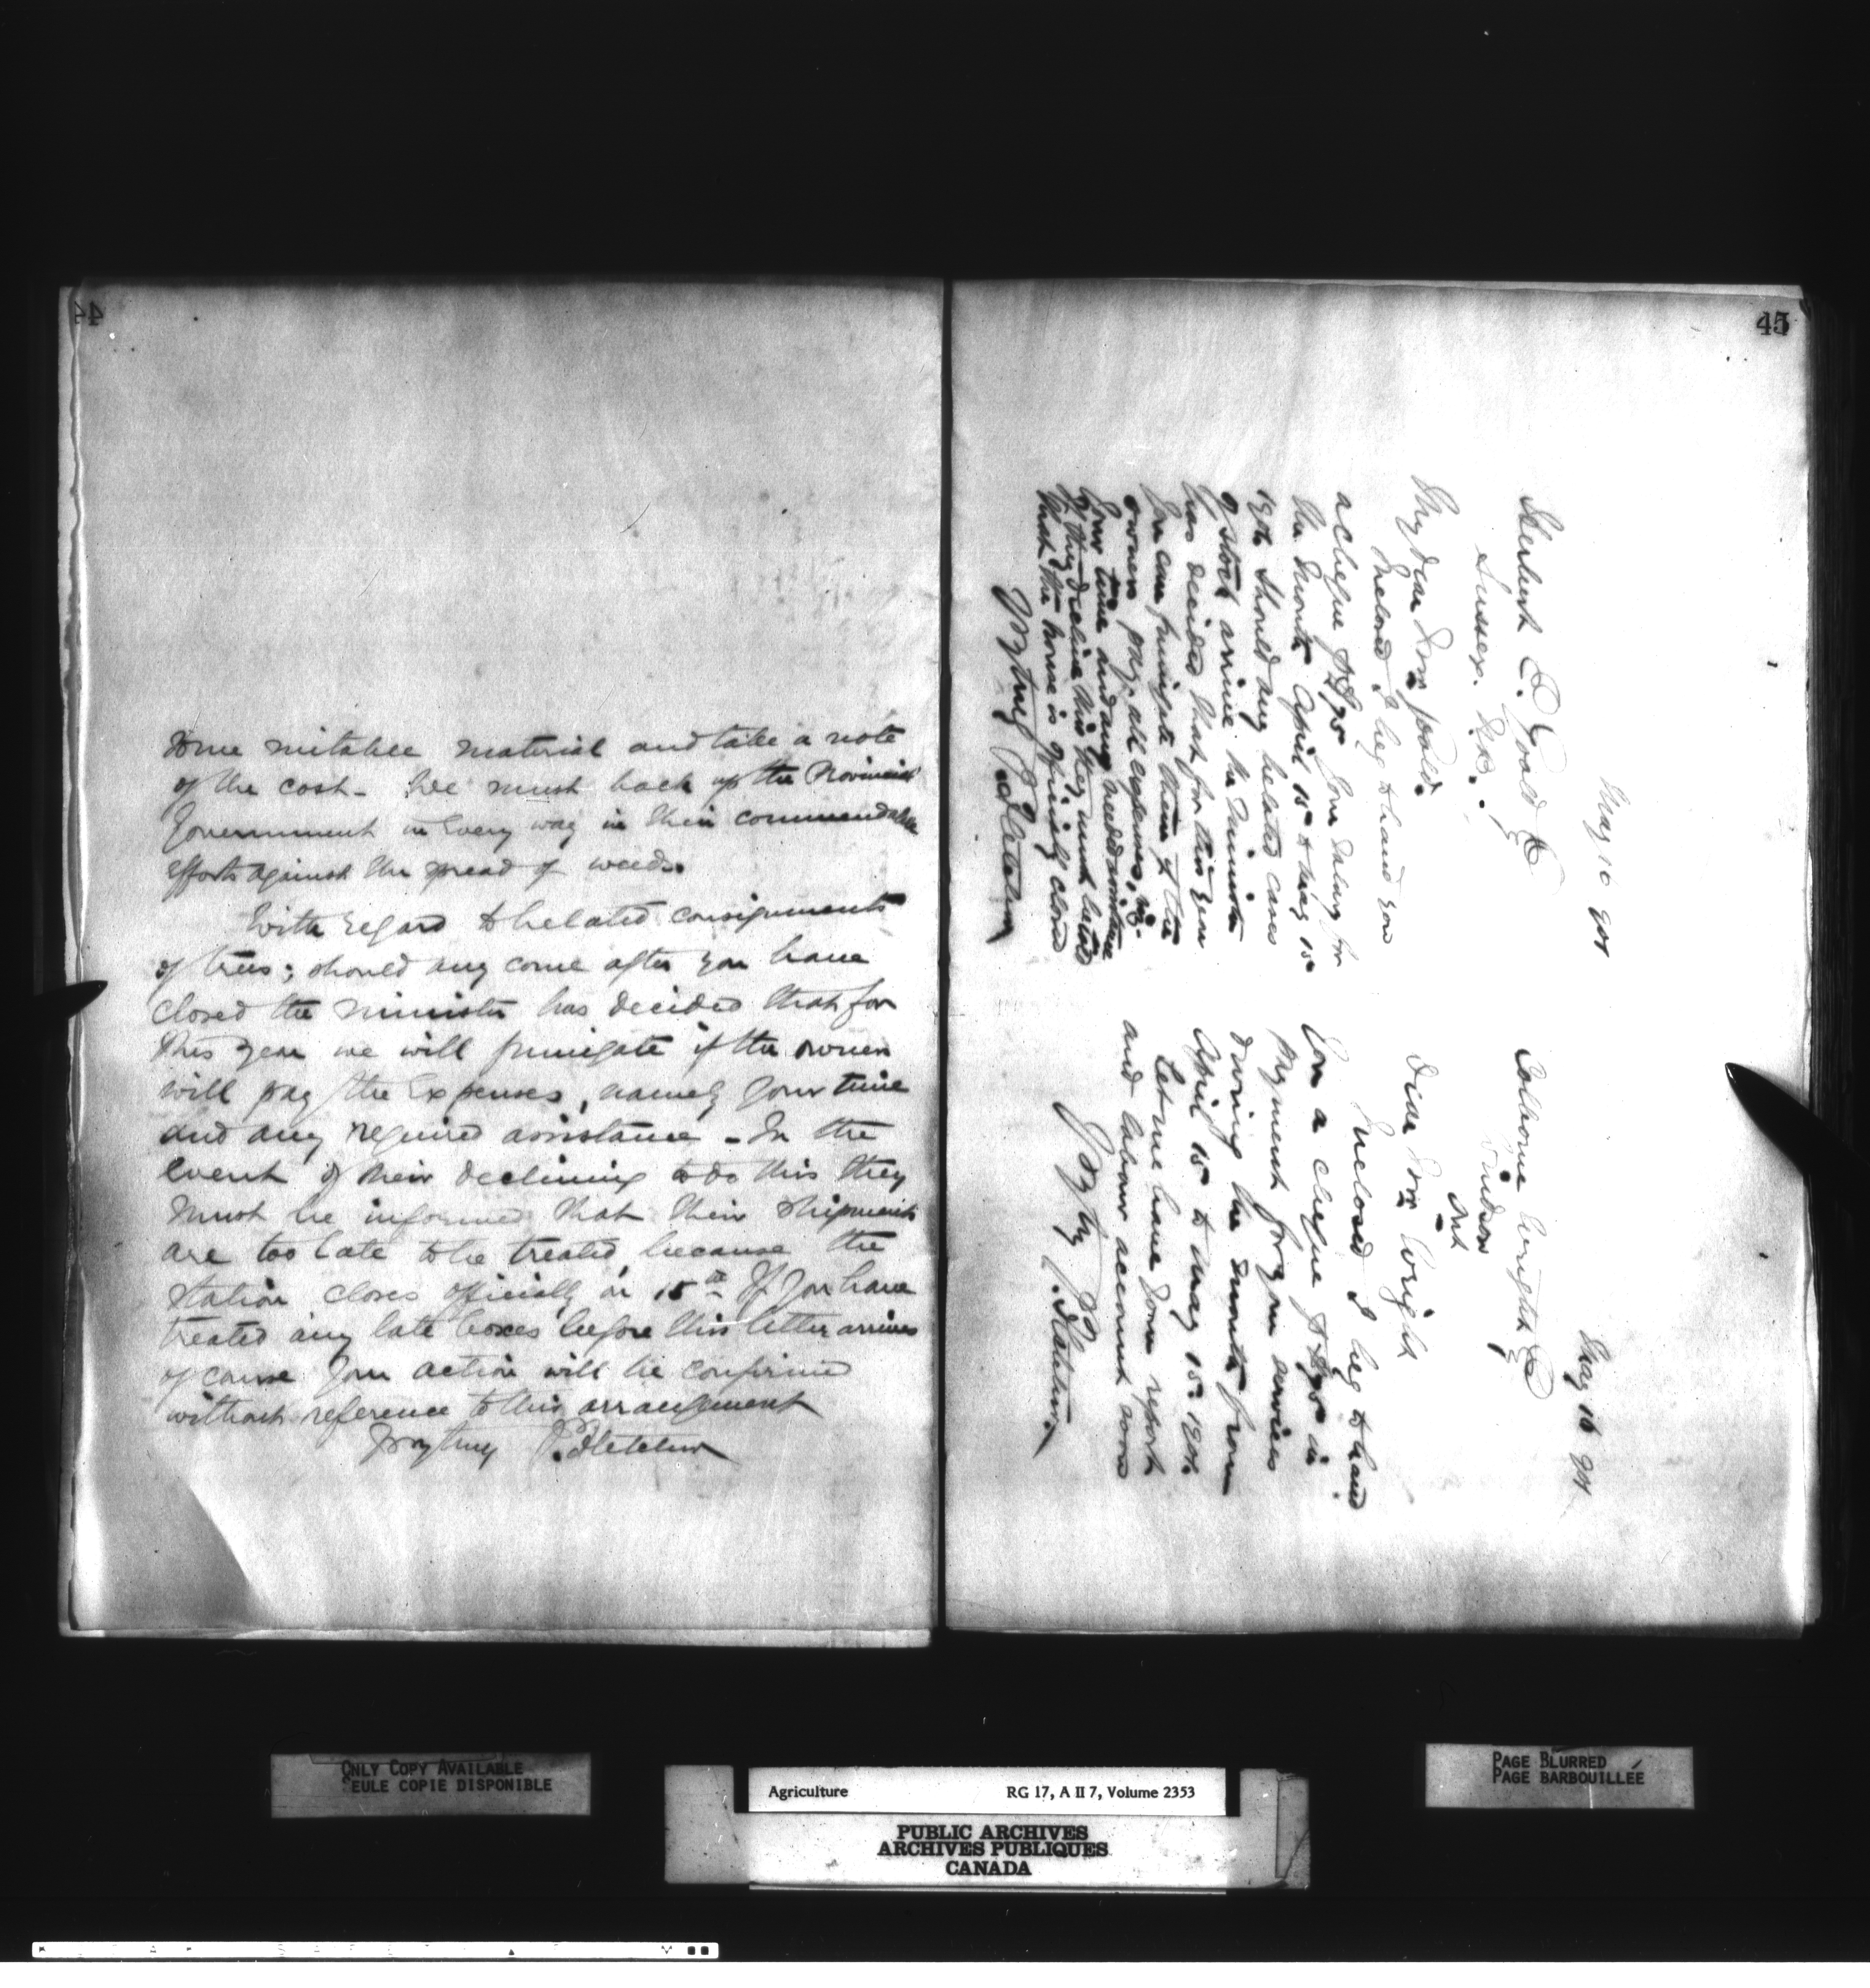 44
some suitable material and take a note
of the cost - We must back up the Provincial
Government in every way in their commendable
efforts against the spread of weeds.
With regard to belated consignments
of trees; should any come after you have
closed the minister has decided that for
this year we will fumigate if the owners
will pay the expenses, namely your time
and any required assistance - In the
event of their declining to do this they
must be informed that their shipments
are too late to be treated, because the
station closes officially on 15th If you have
treated any late boxes before this letter arrives
of course your action will be confirmed
without reference to this arrangement
Yrs truly J. Fletcher
45
May 16 901
Herbert E. Goold Esq
Sussex. N.B.
My dear Sir
Enclosed I beg to hand you
a cheque for $75 your salary for
the month April 15 to May 15
1901. Should any belated cases
of stock arrive the Minister
has decided that for this year
you can fumigate them if the
owners pay all expenses, viz.
your time and any needed assistance
If they decline this they must be told
that the house is officially closed
Yrs truly J. Fletcher
May 16 901
Colborne Wright Esq
Windsor
Ont
Dear Sir Wright
Enclosed I beg to hand
you a cheque for $75 in
payment for yr services
during the month from
April 15 to May 15. 1901.
Let me have your report
and labour account soon
Yrs try J. Fletcher.
ONLY COPY AVAILABLE
SEULE COPIE DISPONIBLE
Agriculture RG 17, A II 7, Volume 2353
PUBLIC ARCHIVES
ARCHIVES PUBLIQUES
CANADA
PAGE BLURRED
PAGE BARBOUILLÉE